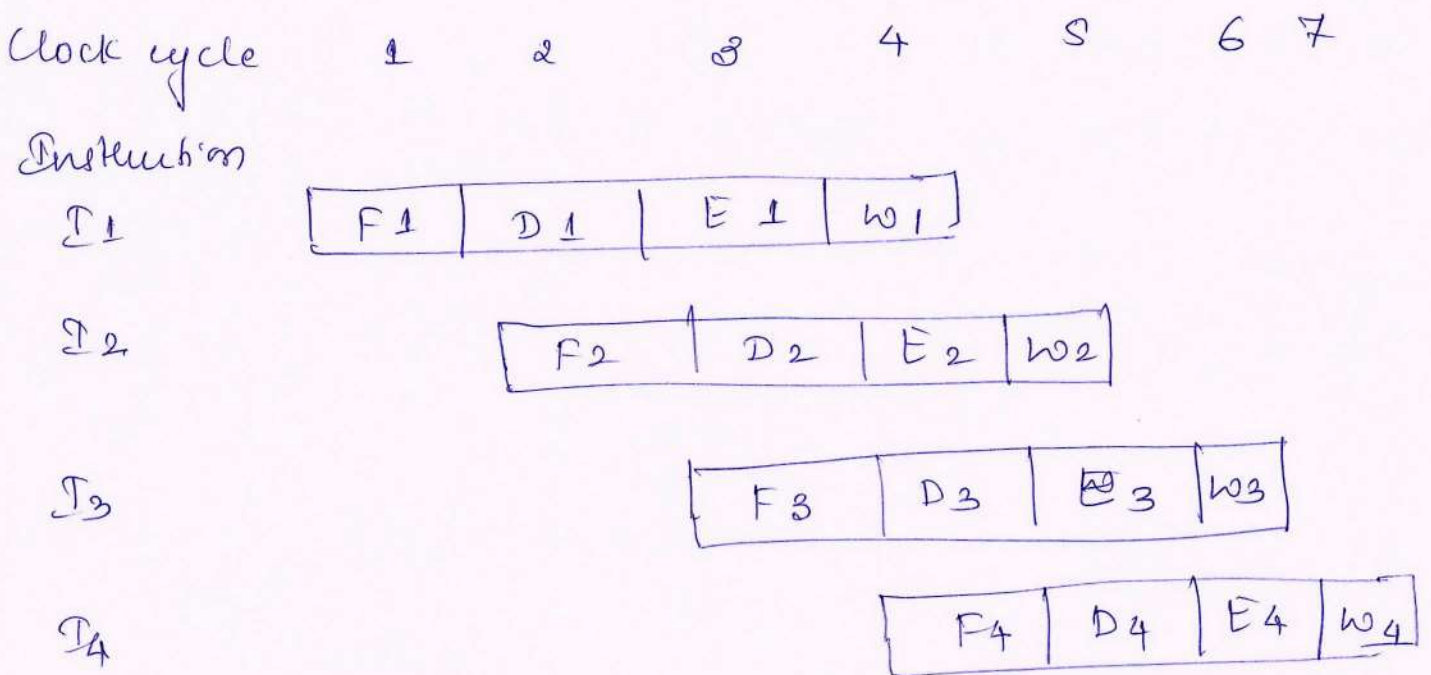 Clock cycle 1 2 3 4 5 6 7
Instruction
I1 F1 D1 E1 W1
I2 F2 D2 E2 W2
I3 F3 D3 E3 W3
I4 F4 D4 E4 W4